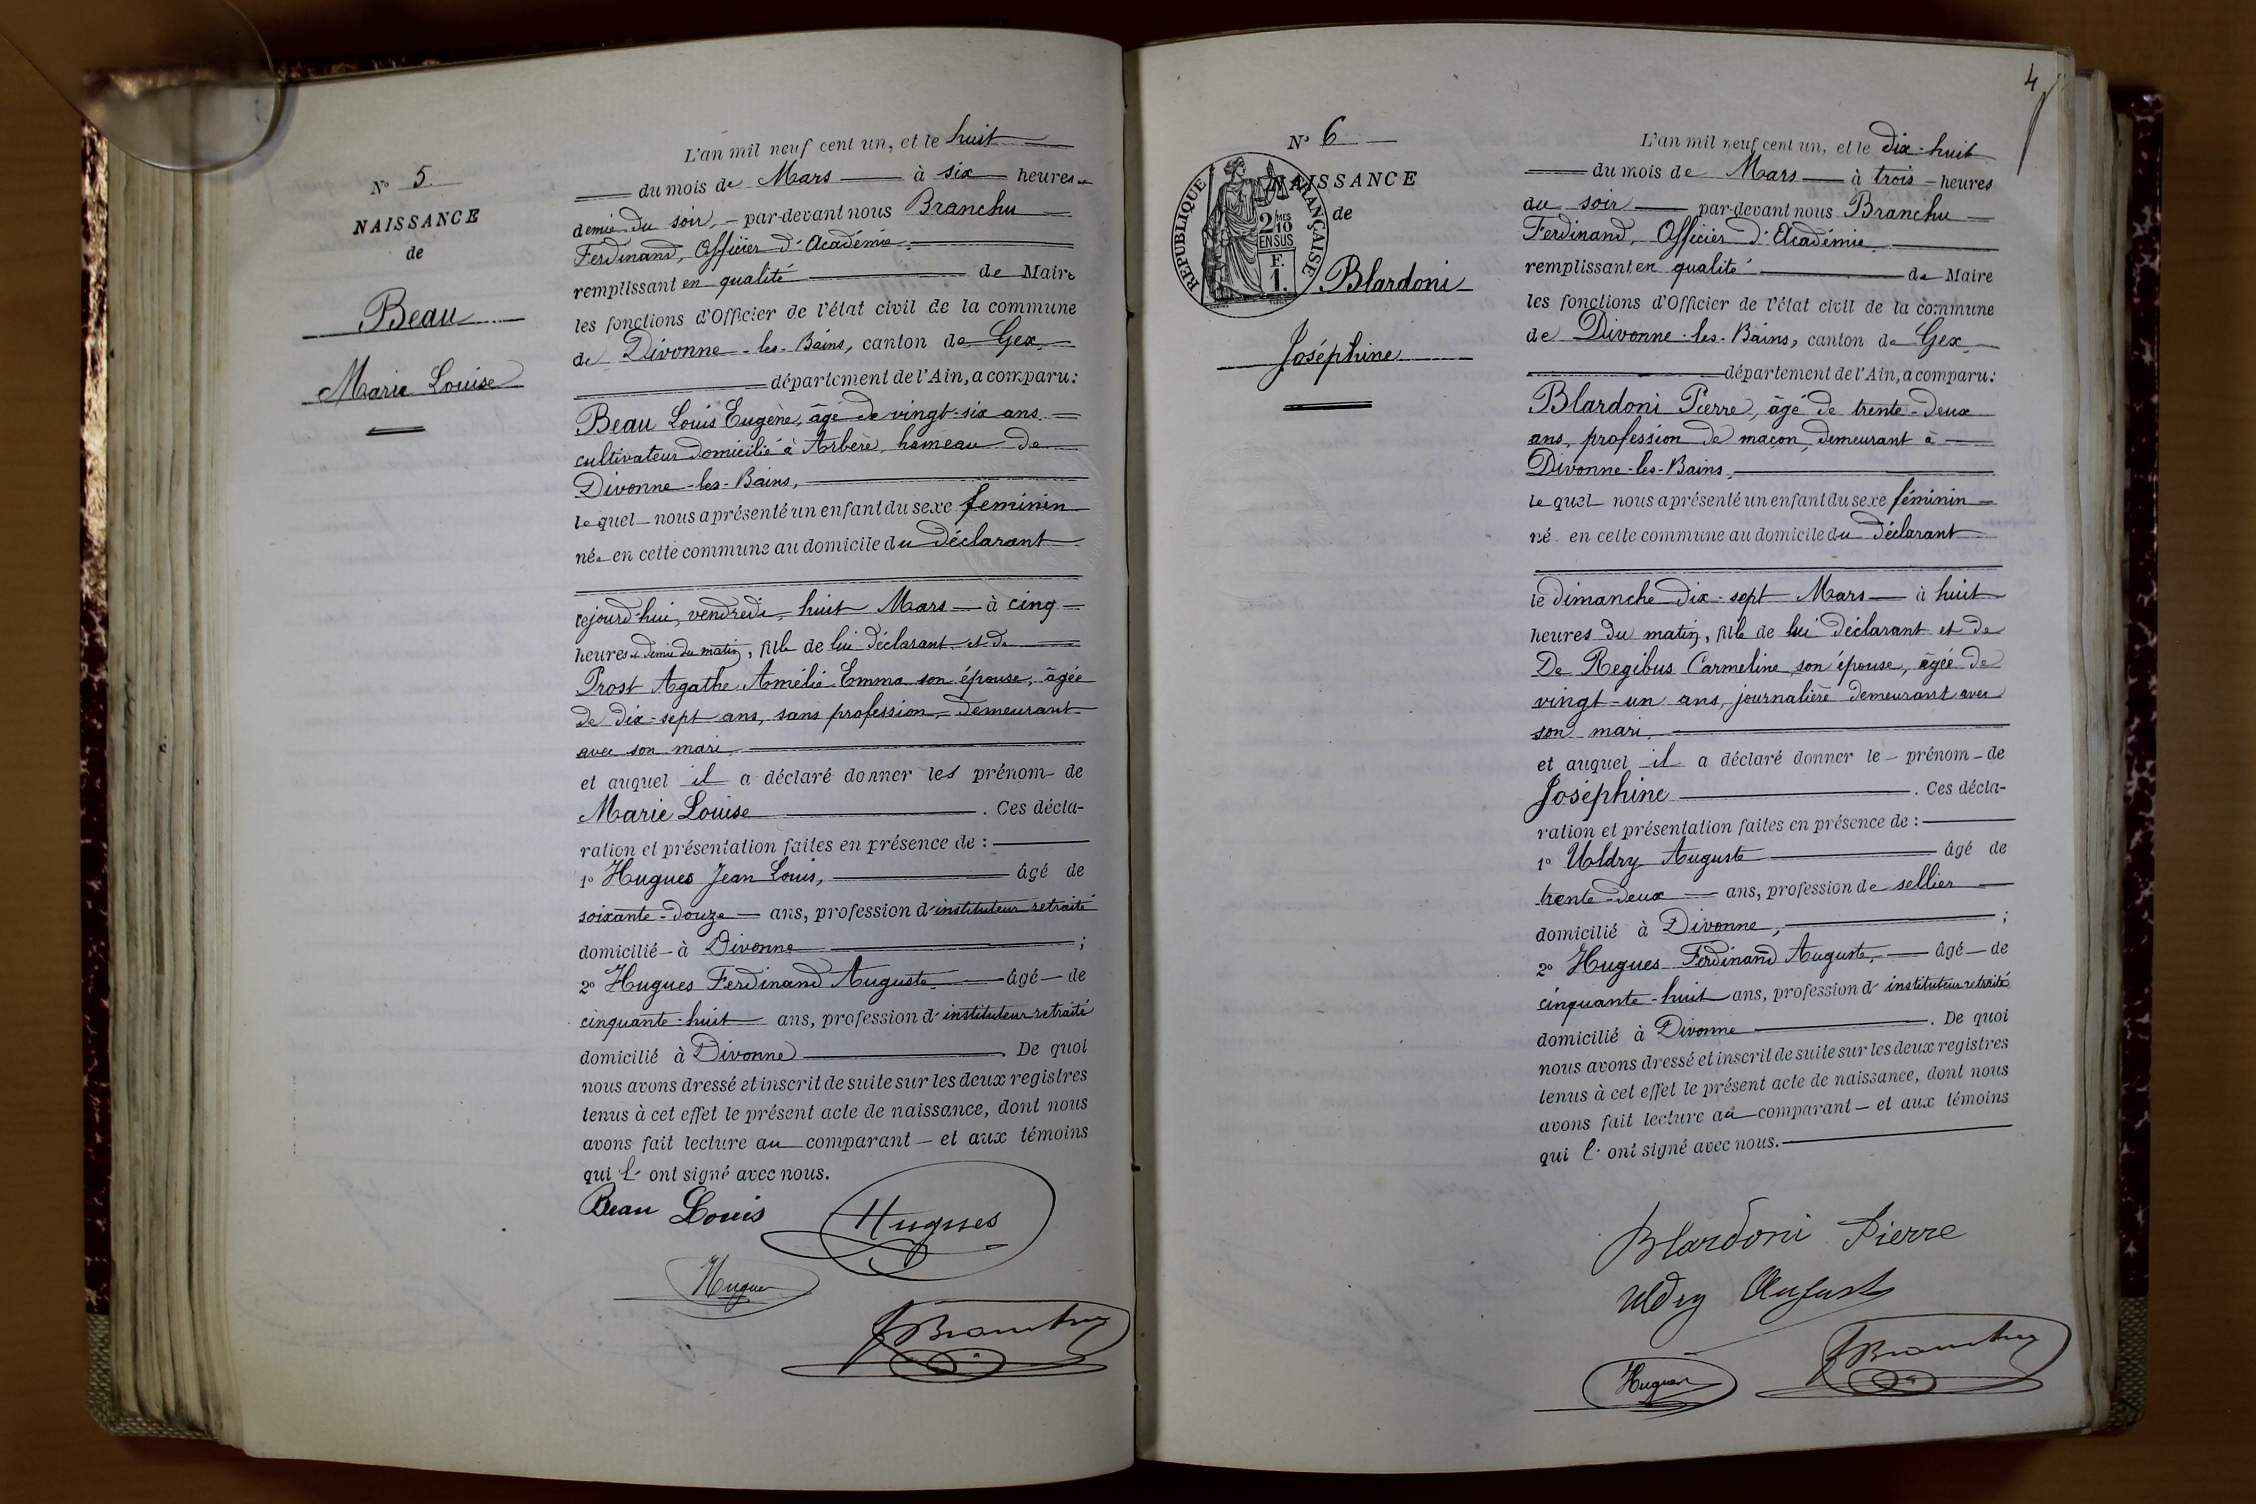 N° 5.
NAISSANCE
de
Beau
Marie Louise
L'an mil neuf cent un, et le huit
du mois de Mars à six heures et
demie du soir, par-devant nous Branchu
Ferdinand, Officier d'Académie,
remplissant en qualité de Maire
les fonctions d'Officier de l'état civil de la commune
de Divonne-les-Bains, canton de Gex,
département de l'Ain, a comparu:
Beau Louis Eugène, âgé de vingt-six ans
cultivateur domicilié à Arbère, hameau de
Divonne-les-Bains,
lequel nous a présenté un enfant du sexe feminin
née en cette commune au domicile du déclarant
cejourd'hui, vendredi, huit Mars à cinq
heures et demie du matin, fille de lui déclarant et de
Prost Agathe Amélie Emma son épouse, âgée
de dix-sept ans, sans profession, demeurant
avec son mari,
et auquel il a déclaré donner les prénom de
Marie Louise . Ces décla-
ration et présentation faites en présence de :
1° Hugues Jean Louis, âgé de
soixante-douze ans, profession d'instituteur retraité
domicilié à Divonne ;
2° Hugues Ferdinand Auguste, âgé de
cinquante-huit ans, profession d'instituteur retraité
domicilié à Divonne . De quoi
nous avons dressé et inscrit de suite sur les deux registres
tenus à cet effet le présent acte de naissance, dont nous
avons fait lecture au comparant et aux témoins
qui l'ont signé avec nous.
Beau Louis
Hugues
Hugues
Branchu
4
N° 6
NAISSANCE
de
RÉPUBLIQUE FRANÇAISE
2/10 MES
EN SUS
F.
1.
Blardoni
Joséphine
L'an mil neuf cent un, et le dix-huit
du mois de Mars à trois heures
du soir par-devant nous Branchu
Ferdinand, Officier d'Académie,
remplissant en qualité de Maire
les fonctions d'Officier de l'état civil de la commune
de Divonne-les-Bains, canton de Gex,
département de l'Ain, a comparu:
Blardoni Pierre, âgé de trente-deux
ans, profession de maçon, demeurant à
Divonne-les-Bains,
lequel nous a présenté un enfant du sexe féminin
né en cette commune au domicile du déclarant
le dimanche dix-sept Mars à huit
heures du matin, fille de lui déclarant et de
De Regibus Carmeline son épouse, âgée de
vingt-un ans, journalière demeurant avec
son mari,
et auquel il a déclaré donner le prénom de
Joséphine . Ces décla-
ration et présentation faites en présence de :
1° Uldry Auguste âgé de
trente-deux ans, profession de sellier
domicilié à Divonne, ;
2° Hugues Ferdinand Auguste, âgé de
cinquante-huit ans, profession d'instituteur retraité
domicilié à Divonne . De quoi
nous avons dressé et inscrit de suite sur les deux registres
tenus à cet effet le présent acte de naissance, dont nous
avons fait lecture au comparant et aux témoins
qui l'ont signé avec nous.
Blardoni Pierre
Uldry August
Hugues
Branchu